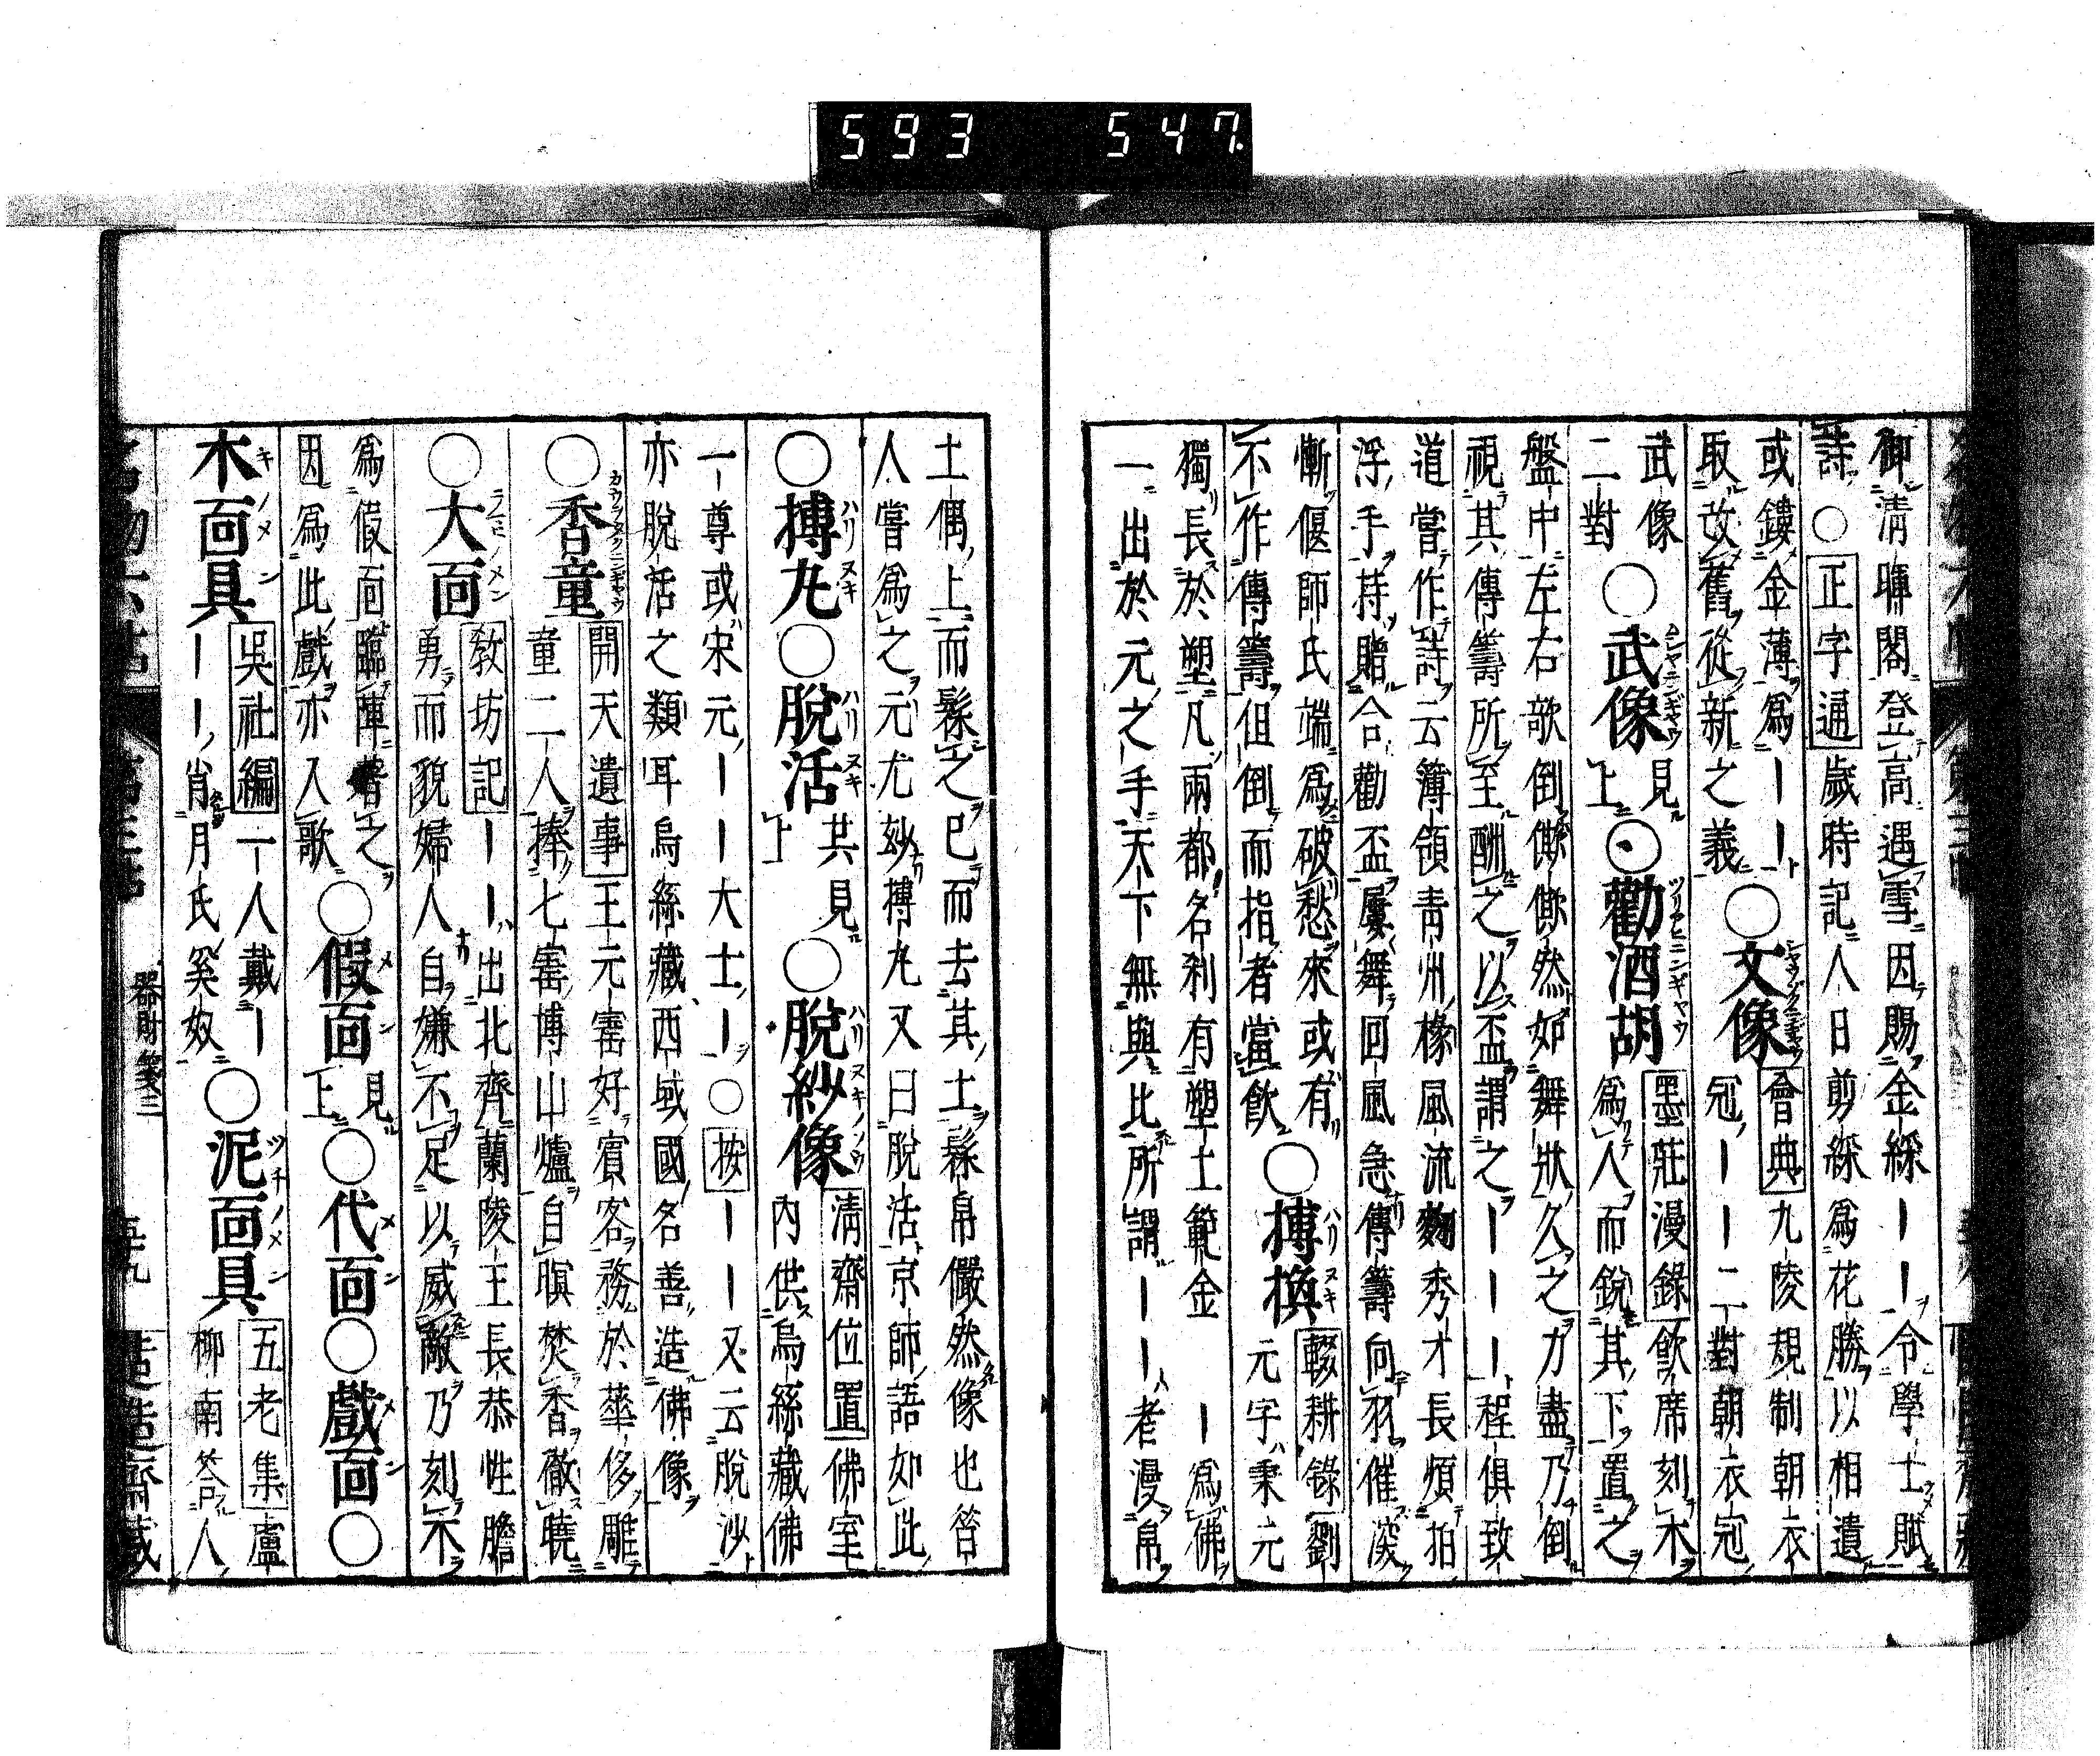 593 547.
御清暉閣登高遇雪因賜金綵｜｜令學士賦
詩○正字通歲時記人日剪綵爲花勝以相遺
或鏤金薄爲｜｜
取改舊從新之義○文像會典九陵規制朝衣
冠｜｜二對朝衣冠
武像
二對○武像見上○勸酒胡墨莊漫錄飮席刻木
爲人而銳其下置之
盤中左右欹倒僛僛然如舞狀久之力盡乃倒
視其傳籌所至酬之以盃謂之｜｜｜程俱致
道嘗作詩云簿領青州掾風流麴秀才長煩拍
浮手持贈合勸盃屢舞回風急傳籌向羽催深
慚偃師氏端爲破愁來或有
不作傳籌但倒而指者當飮○摶換輟耕錄劉
元字秉元
獨長於塑凡兩都名刹有塑土範金｜爲佛
一出於元之手天下無與比所謂｜｜者漫帛
土偶上而髹之已而去其土髹帛儼然像也昔
人嘗爲之元尤玅摶丸又曰脫活京師語如此
○摶丸○脫活共見上○脫紗像淸齋位置佛室
內供烏絲藏佛
一尊或宋元｜｜大士｜○按｜｜又云脫沙
亦脫活之類耳烏絲藏西域國名善造佛像
○香童開天遺事王元寳好賓客務於華侈雕
童二人捧七寳博山爐自暝焚香徹曉
○大面敎坊記｜｜出北齊蘭陵王長恭性膽
勇而貌婦人自嫌不足以威敵乃刻木
爲假面臨陣著之
因爲此戲亦入歌○假面見上○代面○戲面○
木面具吳社編一人戴｜
｜｜肖月氏奚奴○泥面具五老集盧
柳南答人
器財箋三